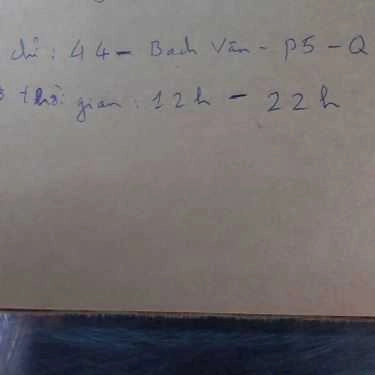 chỉ : 44 - Bạch Vân - P5 - Q
thời gian : 12h - 22h